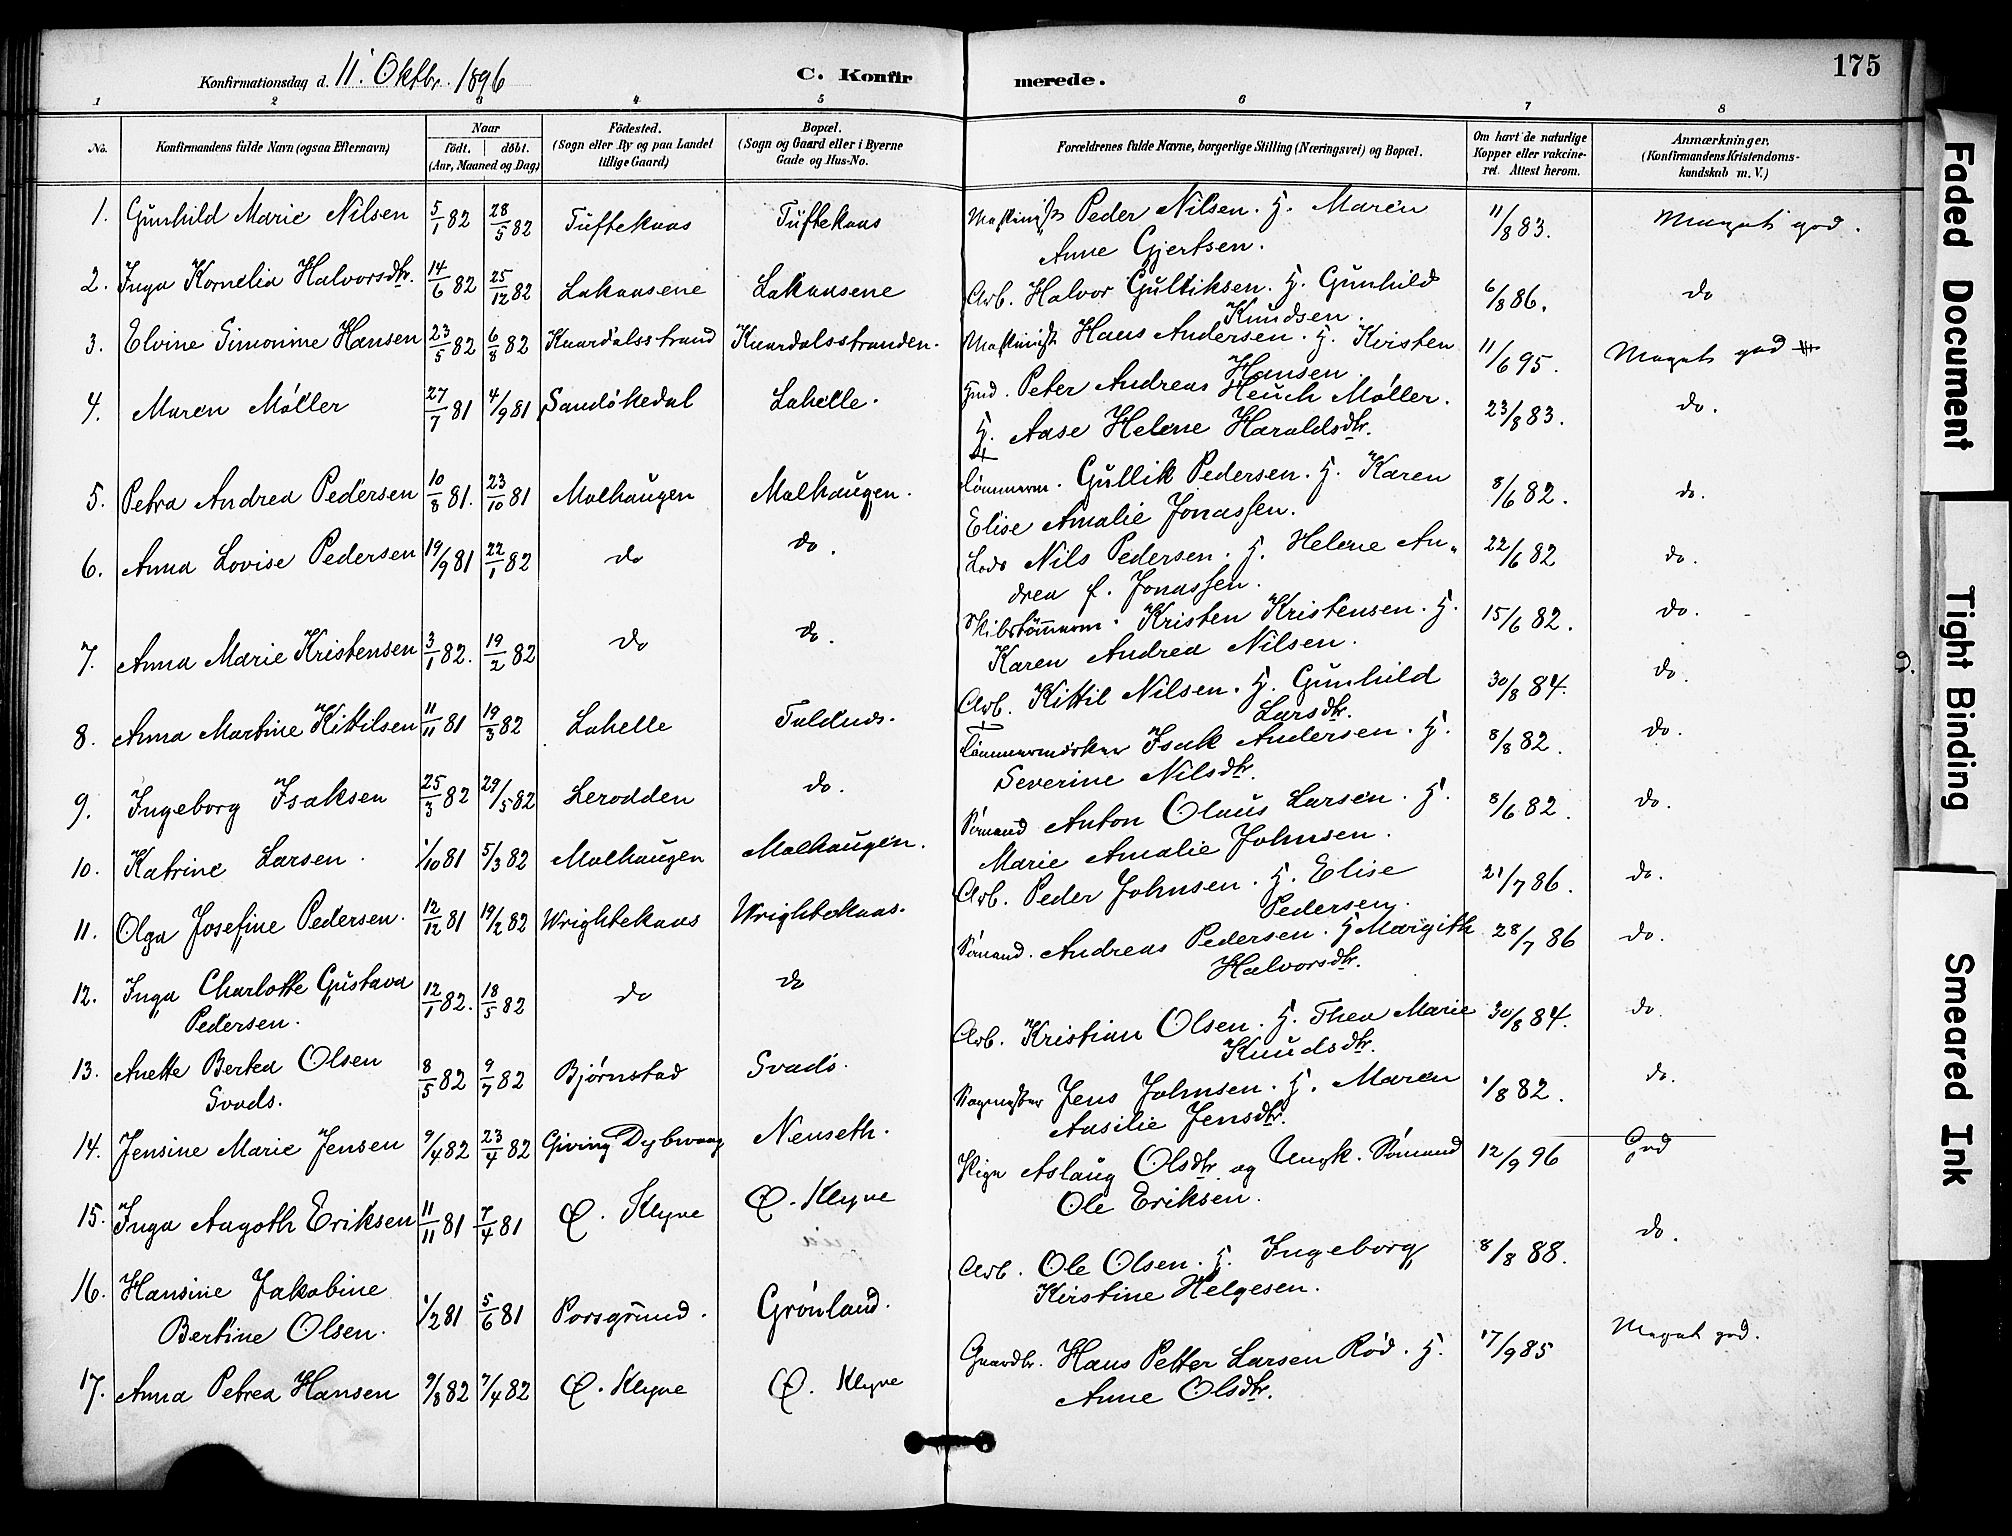 175
Konfirmationsdag d. 11' Oktbr. 1896
C. Konfir merede.
1 2 3 4 5 6 7 8
No. Konfirmandens fulde Navn (ogsaa Efternavn) Naar født. døbt. (Aar, Maaned og Dag) Fødested. (Sogn eller By og paa Landet tillige Gaard) Bopæl. (Sogn og Gaard eller i Byerne Gade og Hus-No. Forældrenes fulde Navne, borgerlige Stilling (Næringsvei) og Bopæl. Om havt de naturlige Kopper eller vakcineret. Attest herom. Anmærkninger, (Konfirmandens Kristendomskundskab m. V.)
1. Gunhild Marie Nilsen 5/1 82 28/5 82 Tuftekaas Tuftekaas Maskinist Peder Nilsen. H. Maren 11/8 83. Meget god.
Anne Gjertsen.
2. Inga Kornelia Halvorsdtr. 14/6 82 25/12 82 Lakaasene Lakaasene Arb. Halvor Gulliksen. H. Gunhild 6/8 86. do
Knudsen.
3. Elvine Simonine Hansen 23/5 82 6/8 82 Knardalsstrand Knardalsstranden. Maskinist Hans Andersen. H. Kirsten 11/6 95. Meget god
Hansen.
4. Maren Møller 27/7 81 4/9 81 Sandøkedal Lahelle. Hmd. Peter Andreas Heuch Møller. 23/8 83. do.
H. Aase Helene Haraldsdtr.
5. Petra Andrea Pedersen 10/8 81. 23/10 81 Malhaugen Malhaugen. Tømmerm. Gullik Pedersen. H. Karen 8/6 82. do.
Elise Amalie Jonassen.
6. Anna Lovise Pedersen 19/9 81 22/1 82 do do. Lods Nils Pedersen. H. Helene An- 22/6 82 do.
drea f. Jonassen.
7. Anna Marie Kristensen 3/1 82. 19/2 82 do do. Skibstømmerm. Kristen Kristensen. H. 15/6 82. do.
Karen Andrea Nilsen.
8. Anna Martine Kittilsen 11/11 81 19/3 82 Lahelle Faldnes. Arb. Kittil Nilsen. H. Gunhild 30/8 84. do.
Larsdtr.
9. Ingeborg Isaksen 25/3 82 29/5 82 Lerodden do. Tømmermester Isak Andersen. H. 8/8 82. do.
Severine Nilsdtr.
10. Katrine Larsen 1/10 81 5/3 82 Malhaugen Malhaugen. Sømand Anton Olaus Larsen. H. 8/6 82. do.
Marie Amalie Johnsen.
11. Olga Josefine Pedersen. 12/12 81 19/2 82 Wrightekaas Wrightekaas. Arb. Peder Johnsen. H. Elise 21/7 86. do.
Pedersen.
12. Inga Charlotte Gustava 12/1 82. 18/5 82 do do Sømand. Andreas Pedersen. H Margith 28/7 86 do.
Pedersen. Halvorsdtr.
13. Anette Bertea Olsen 8/5 82 9/7 82 Bjørnstad Svadø. Arb. Kristian Olsen. H. Thea Marie 30/8 84. do.
Svads. Knudsdtr.
14. Jensine Marie Jensen 9/4 82 23/4 82 Gjeving Dybvaag Nenseth. Sagmester Jens Johnsen. H. Maren 1/8 82. do.
Ausilie Jensdtr.
15. Inga Aagoth Eriksen 11/11 81 7/4 81 Ø. Klyve Ø. Klyve Pige Aslaug Olsdtr og Ungk. Sømand 12/9 96 God
Ole Eriksen.
16. Hansine Jakobine 1/2 81 5/6 81 Porsgrund. Grønland. Arb. Ole Olsen. H. Ingeborg 8/8 88. do.
Bertine Olsen. Kirstine Helgesen.
17. Anna Petrea Hansen 9/8 82 7/4 82 Ø. Klyve Ø. Klyve Gaardbr. Hans Petter Larsen Rød. H. 17/9 85 Meget god.
Anne Olsdtr.
Faded Document
Tight Binding
Smeared Ink